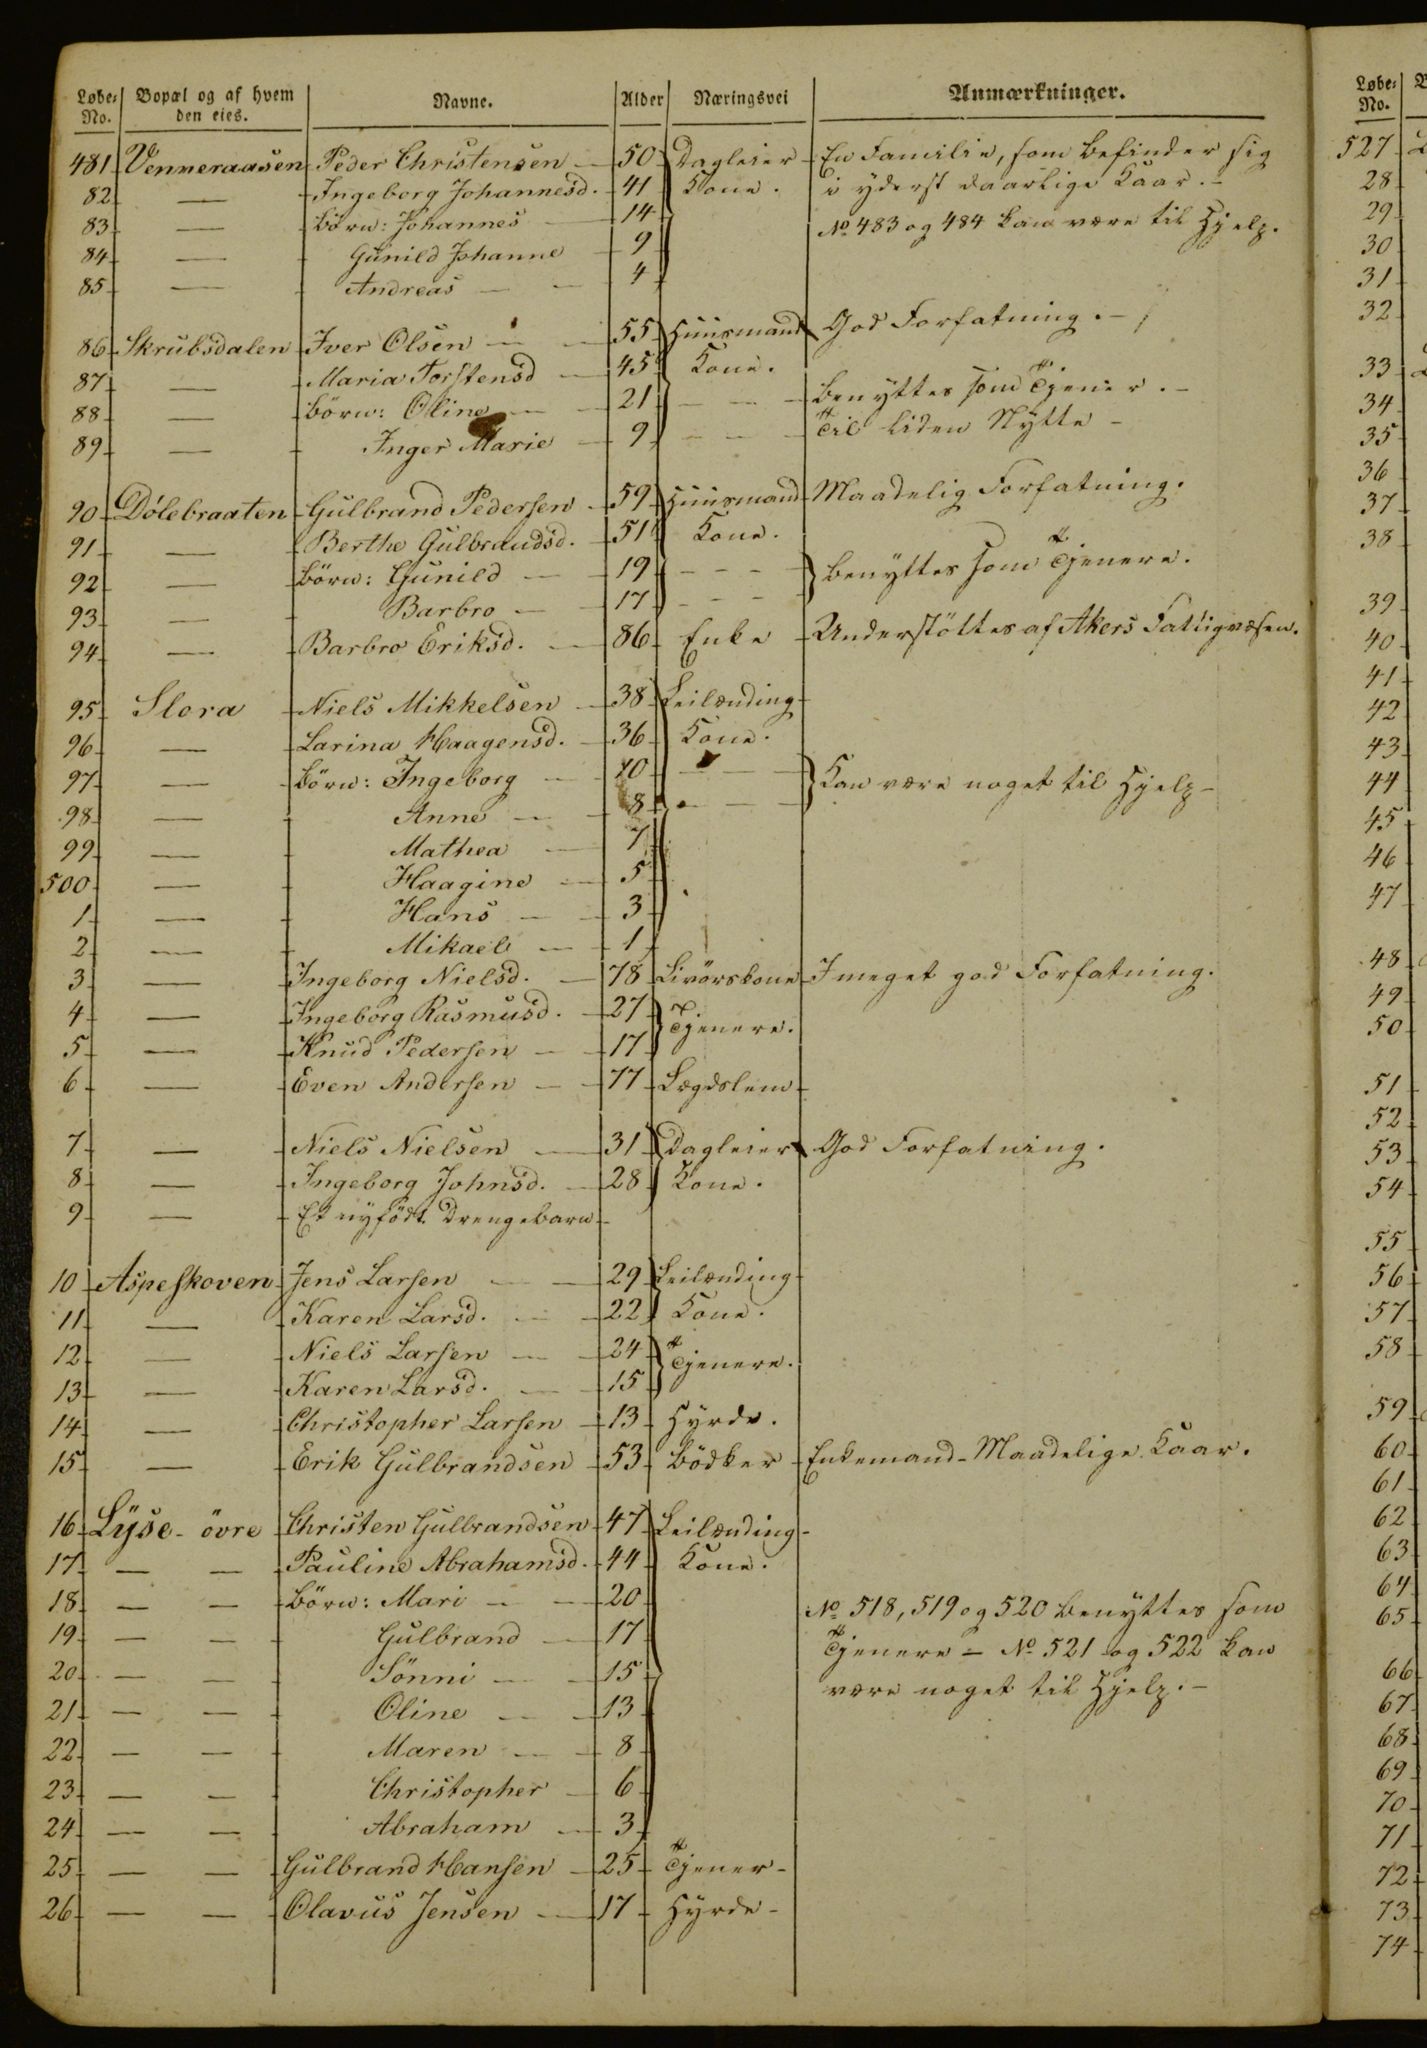 Løbe-No. Bopæl og af hvem den eies. Navne. Alder Næringsvei Anmærkninger.
481 Venneraasen Peder Christensen — 50 Dagleier En Familie, som befinder sig
82 — Ingeborg Johannesd. 41 Kone. i yderst daarlige Kaar. -
83 — Börn: Johannes — 14 No 483 og 484 kan være til Hjelp.
84 — Gunild Johanne 9
85 — Andreas — 4
86 Skrubsdalen Iver Olsen — 55 Huusmand God Forfatning. -
87 — Maria Torstensd — 45 Kone.
88 — Börn: Oline — 21 — — — benyttes som Tjener. -
89 — Inger Marie — 9 — — — Til liden Nytte -
90 Dölebraaten Gulbrand Pedersen 59 Huusmand Maadelig Forfatning.
91 — Berthe Gulbrandsd. 51 Kone.
92 — Börn: Gunild — 19 — — — benyttes som Tjenere.
93 — Barbro — 17 — — —
94 — Barbro Eriksd. — 86 Enke Understöttes af Akers Fattigvæsen.
95 Slora Niels Mikkelsen 38 Leilænding
96 — Larina Haagensd. 36 Kone.
97 — Börn: Ingeborg — 10 — — — Kan være noget til Hjelp -
98 — Anne — 8 — — —
99 — Mathea — 7
500 — Haagine — 5
1 — Hans — 3
2 — Mikael — 1
3 — Ingeborg Nielsd. — 78 Livörskone I meget god Forfatning.
4 — Ingeborg Rasmusd. 27 Tjenere.
5 — Knud Pedersen — 17
6 — Even Andersen — 77 Lægdslem
7 — Niels Nielsen — 31 Dagleier God Forfatning.
8 — Ingeborg Johnsd. — 28 Kone.
9 — Et nyfödt Drengebarn
10 Aspeskoven Jens Larsen — 29 Leilænding
11 — Karen Larsd. — 22 Kone.
12 — Niels Larsen — 24 Tjenere.
13 — Karen Larsd. — 15
14 — Christopher Larsen 13 Hyrde.
15 — Erik Gulbrandsen 53 Bödker Enkemand - Maadelige Kaar.
16 Lyse - övre Christen Gulbrandsen 47 Leilænding
17 — — Pauline Abrahamsd. 44 Kone.
18 — — Börn: Mari — 20 No 518, 519 og 520 benyttes som
19 — — Gulbrand — 17 Tjenere - No 521 og 522 kan
20 — — Sönni — 15 være noget til Hjelp. -
21 — — Oline — 13
22 — — Maren — 8
23 — — Christopher — 6
24 — — Abraham — 3
25 — — Gulbrand Hansen — 25 Tjener -
26 — — Olavus Jensen — 17 Hyrde -
Løbe-No.
527
28
29
30
31
32
33
34
35
36
37
38
39
40
41
42
43
44
45
46
47
48
49
50
51
52
53
54
55
56
57
58
59
60
61
62
63
64
65
66
67
68
69
70
71
72
73
74